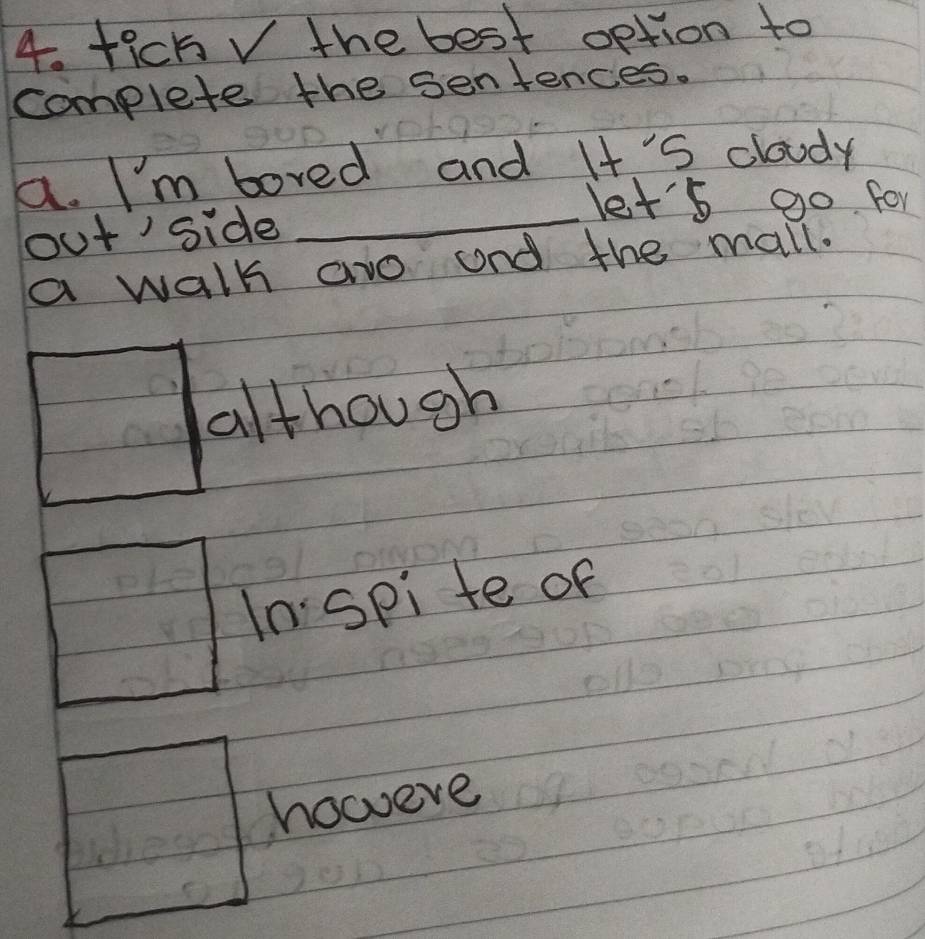 4. tick ✓ the best option to
complete the sentences.
a. I'm bored and It's cloudy
out'side ________ let's go for
a walk aro und the mall.
although
In spi te of
howere